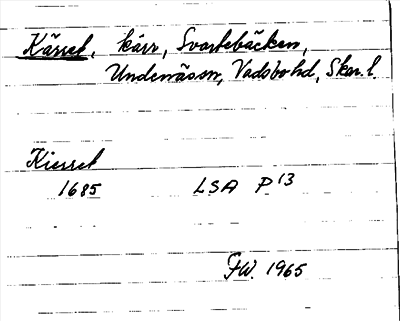 Kärret, kärr, Svartebäcken,
Undenäs sn, Vadsbo hd, Skar. l.
Kierret
1685 LSA P13
FW. 1965